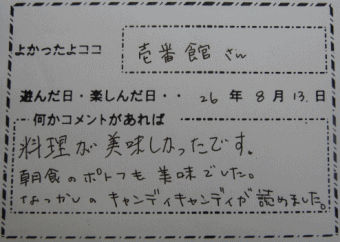 よかったよココ 壱番館さん
遊んだ日・楽しんだ日・・ 26年8月13.日
何かコメントがあれば
料理が美味しかったです。
朝食のポトフも美味でした。
なつかしのキャンディキャンディが読めました。